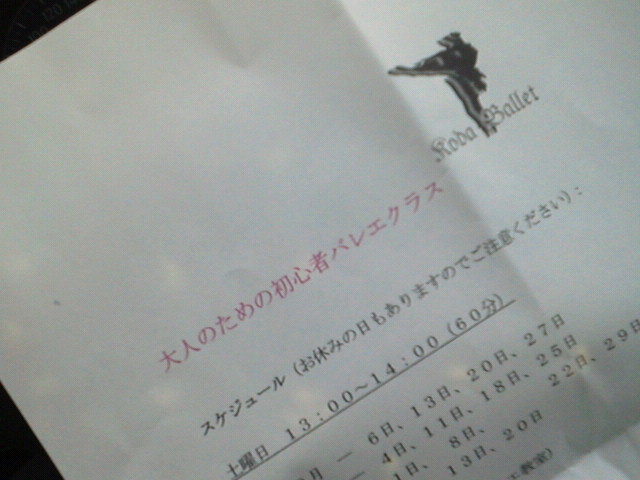 Koda Ballet
大人のための初心者バレエクラス
スケジュール（お休みの日もありますのでご注意ください）：
土曜日　１３：００～１４：００（６０分）
月 ― ６日、１３日、２０日、２７日
― ４日、１１日、１８日、２５日
１日、　８日、　２２日、２９日
１３日、２０日
教室）